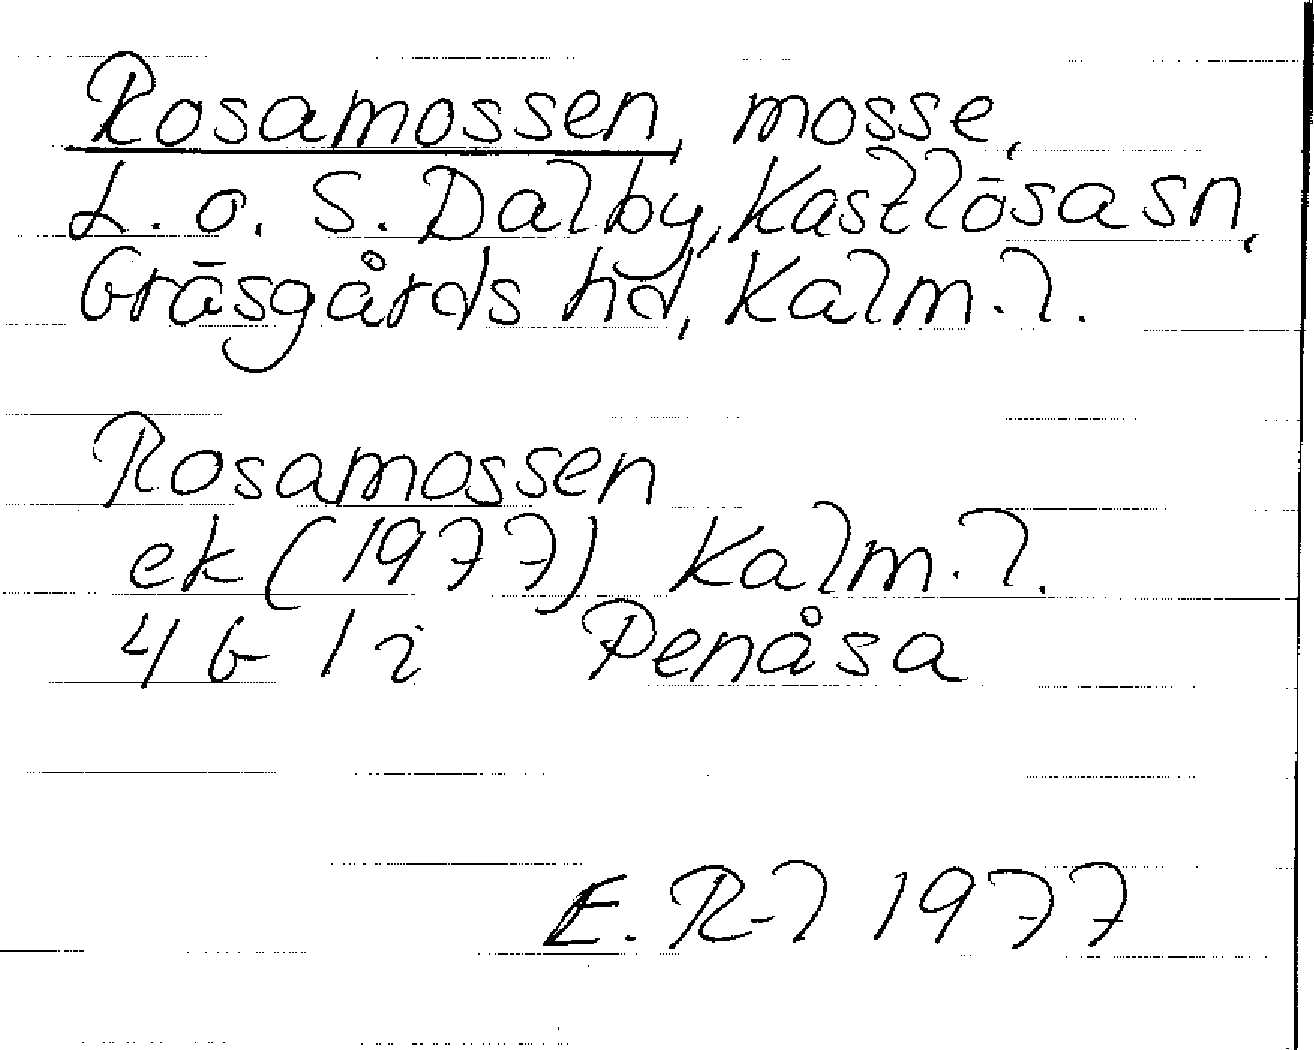 Rosamossen, mosse,
L. o. S. Dalby, Kastlösa sn,
Gräsgårds hd, Kalm. l.
Rosamossen
ek (1977) Kalm. l.
4 G 1 i Penåsa
E. R-l 1977